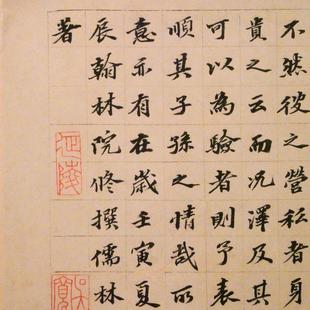 不然彼之營私者身
貴之云而况澤及其
可以為驗者則予表
順其子孫之情哉所
意亦有在歲壬寅夏
辰翰林院修撰儒林
著
延陵